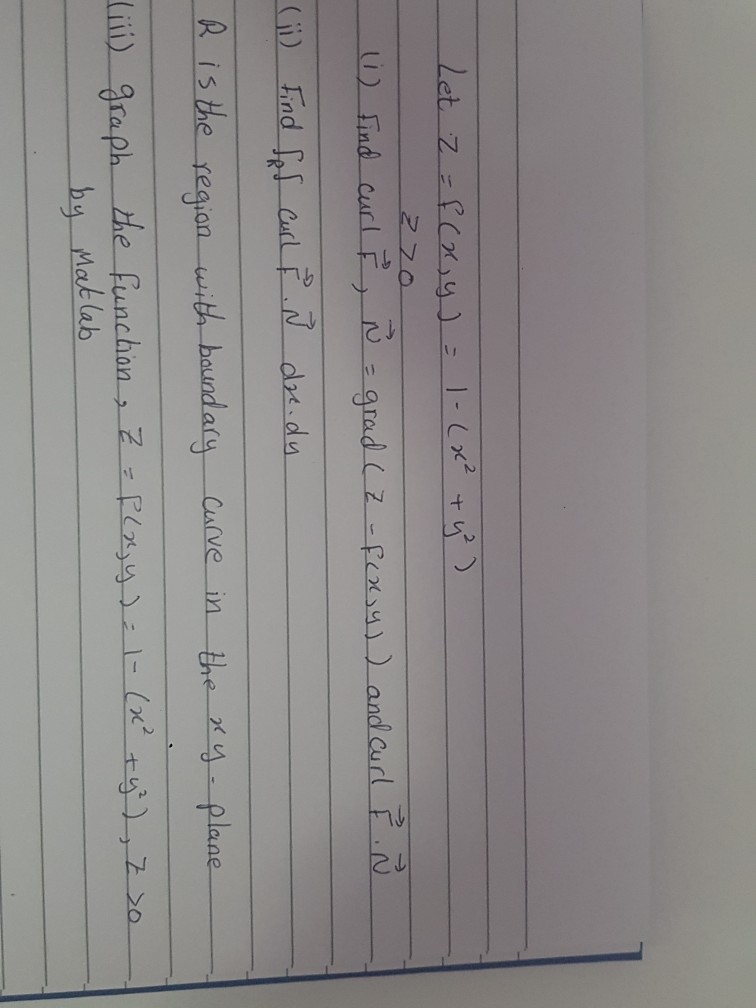 Let Z = f(x,y) = 1 - (x² + y²)
Z > 0
(i) Find curl F⃗, N⃗ = grad(Z - f(x,y)) and curl F⃗.N⃗
(ii) Find ∫∫R curl F⃗.N⃗ dx.dy
R is the region with boundary curve in the xy-plane
(iii) graph the function, Z = f(x,y) = 1 - (x² + y²), Z > 0
by Matlab